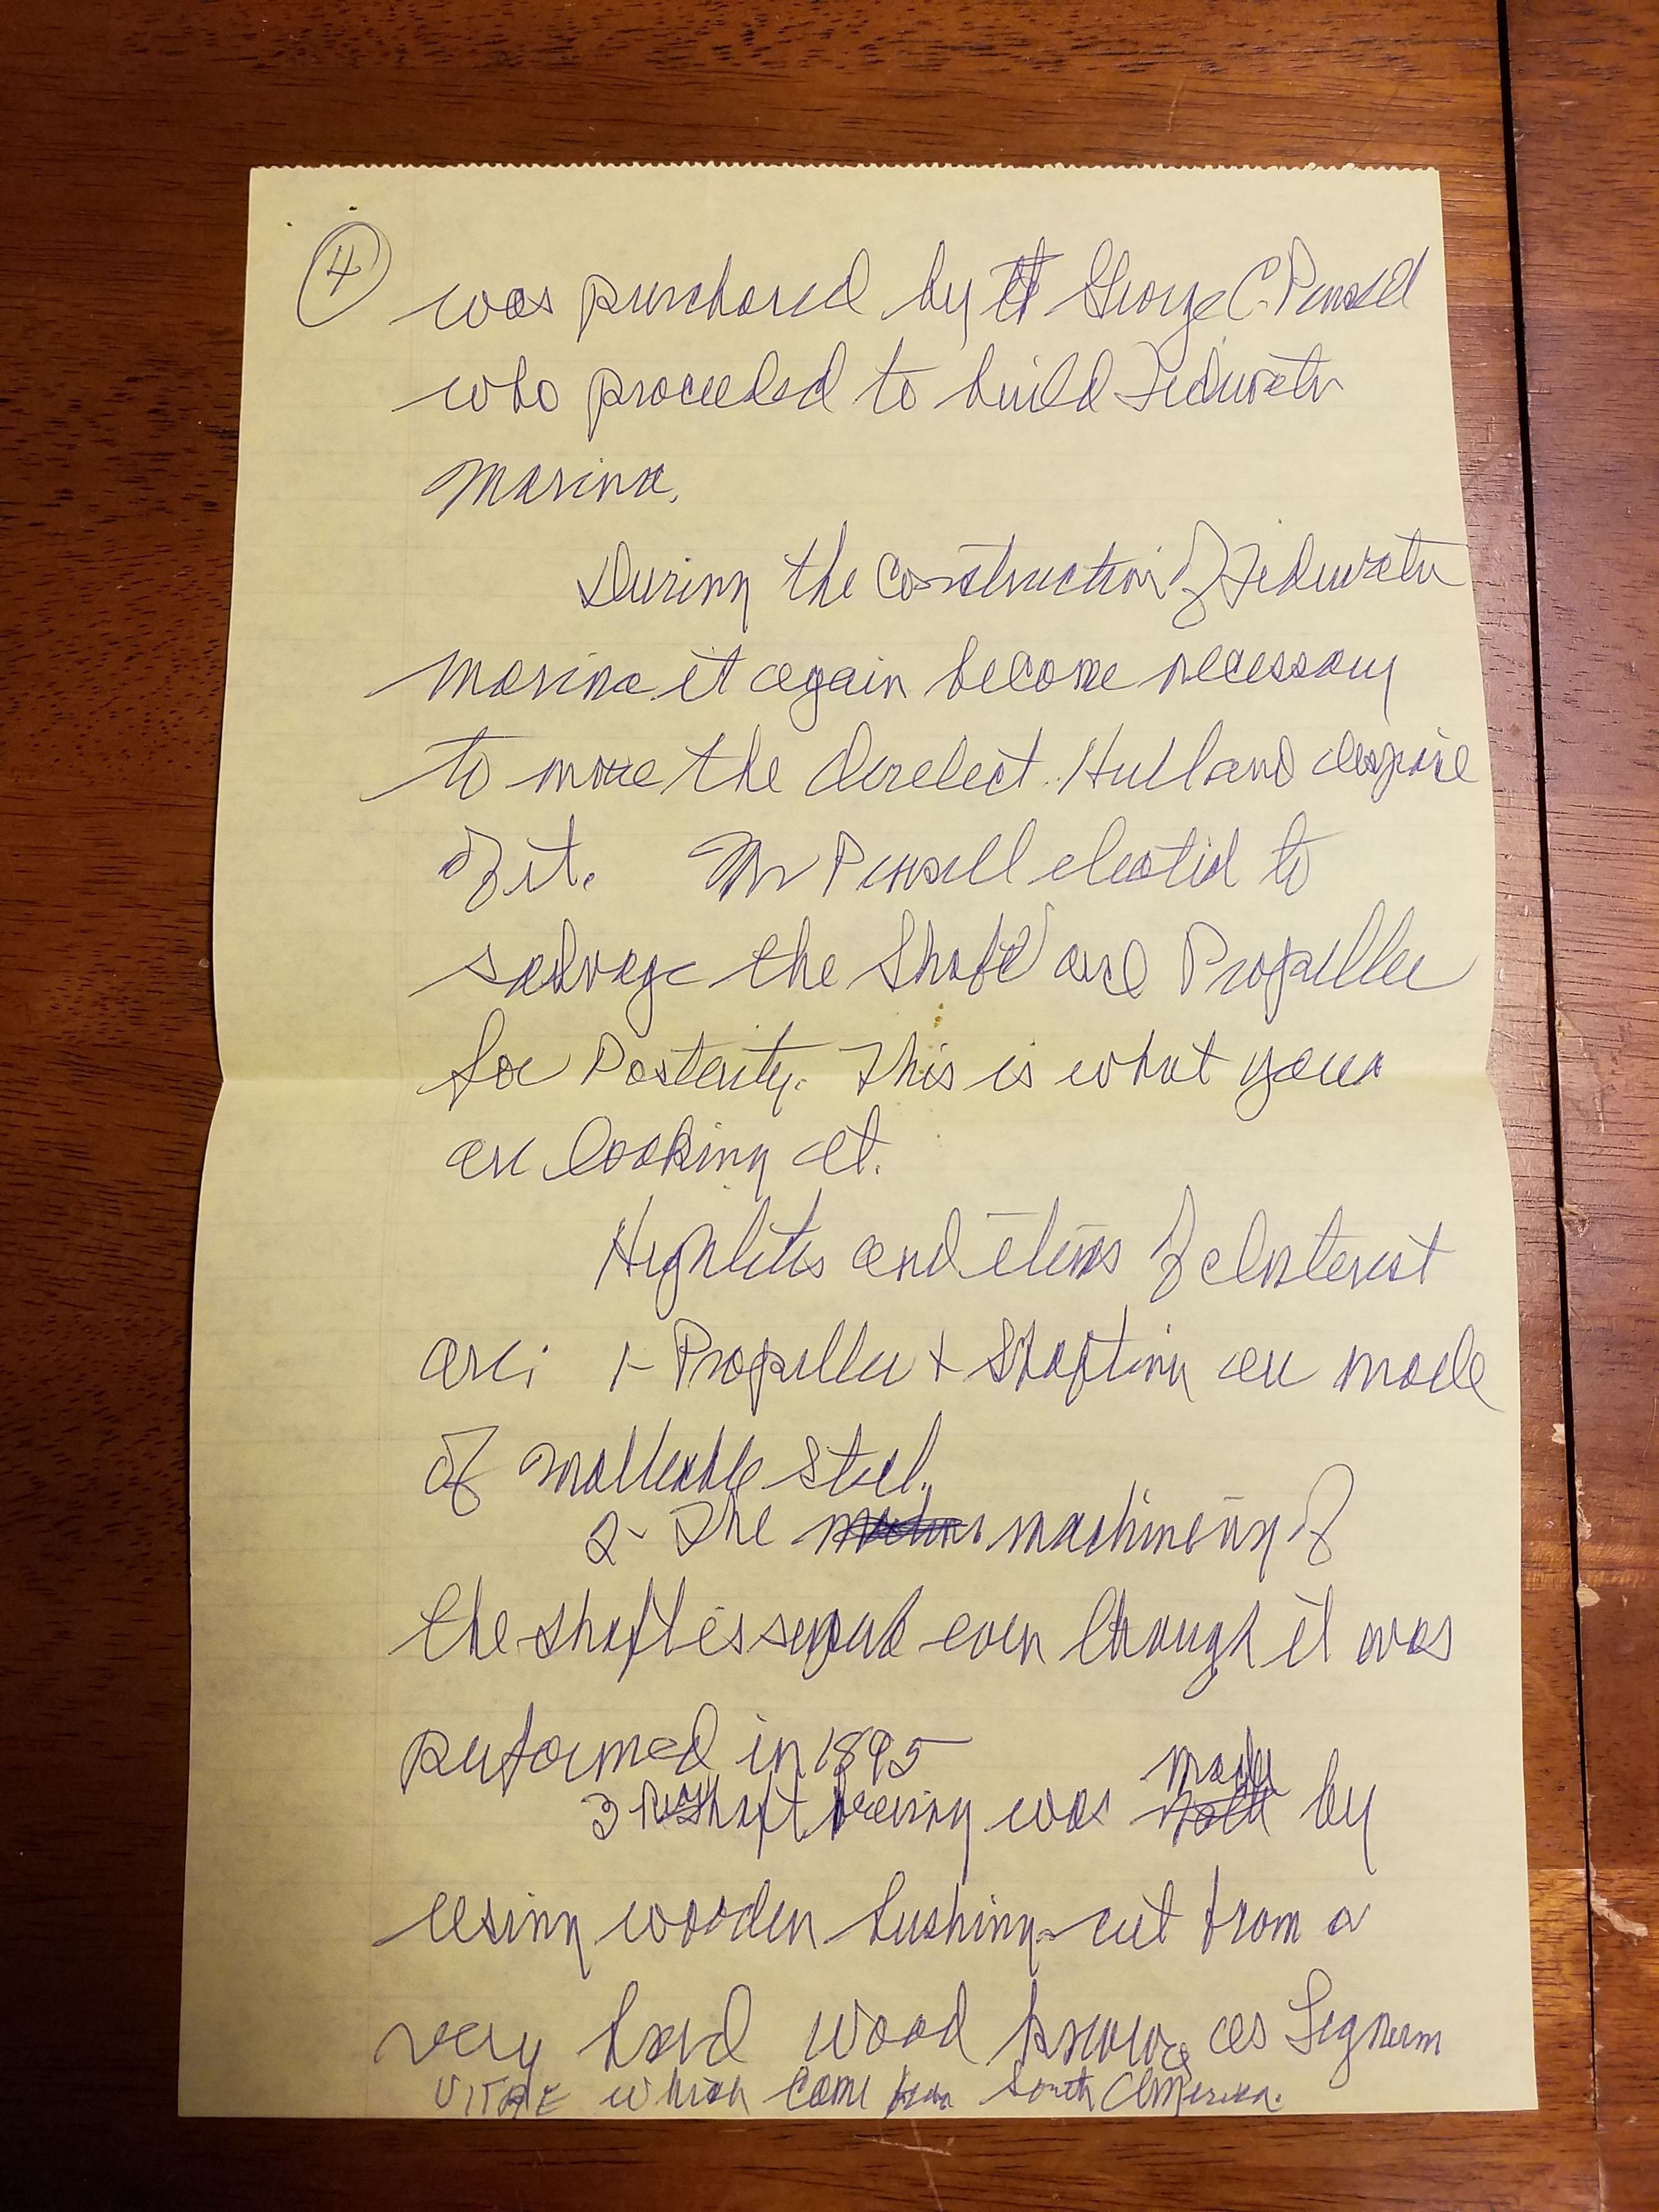 4
was purchased by George C. Pensell
who proceeded to build Tidewater
Marina.
During the construction of Tidewater
Marina it again became necessary
to move the derelect Hull and dispose
of it. Mr Pensell elected to
salvage the Shaft and Propeller
for Posterity. This is what your
are looking at.
Highlites and items of Interest
are: 1- Propeller + Shafting are made
of malleable steel.
2- The machineing of
the shaft is superb even though it was
performed in 1895
3 shaft bearing was made by
using wooden bushings cut from a
very hard wood known as Lignum
VITAE which came from South America.